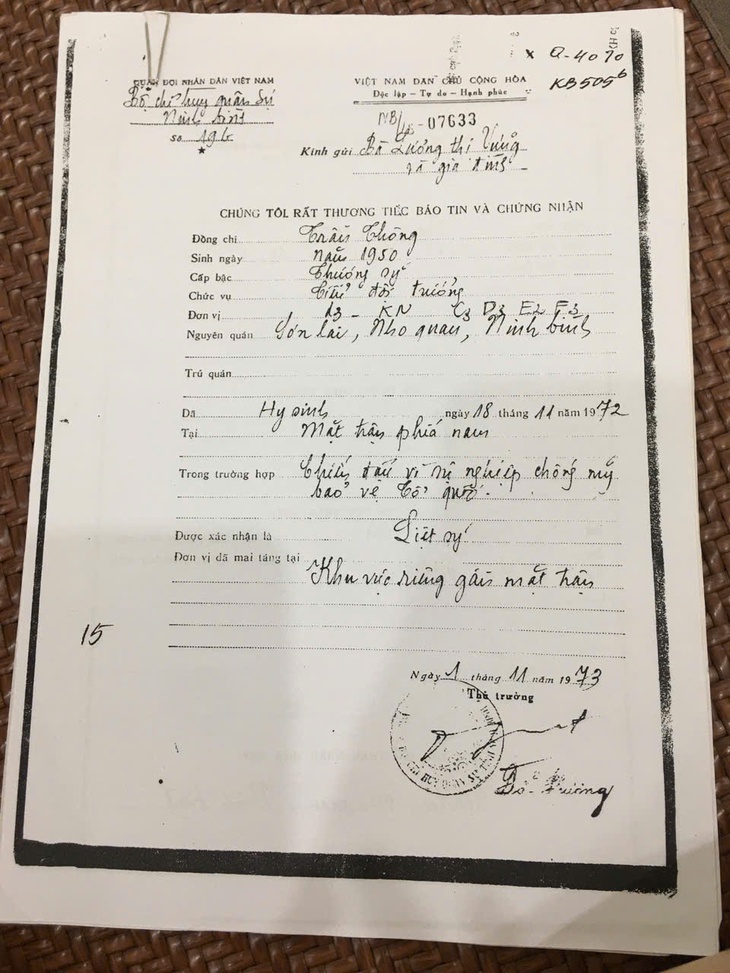 x Q-4070
KB 505ᵇ
QUÂN ĐỘI NHÂN DÂN VIỆT NAM
Bộ chỉ huy quân sự
Ninh bình
Số 196
VIỆT NAM DÂN CHỦ CỘNG HÒA
Độc lập - Tự do - Hạnh phúc
NB/ -07633
Kính gửi Bà Lương thị Vững
và gia đình
CHÚNG TÔI RẤT THƯƠNG TIẾC BÁO TIN VÀ CHỨNG NHẬN
Đồng chí Trần Thông
Sinh ngày năm 1950
Cấp bậc Thượng sỹ
Chức vụ Tiểu đội trưởng
Đơn vị A3 - KN C3 D3 E2 F3
Nguyên quán Sơn lai, Nho quan, Ninh bình
Trú quán
Đã Hy sinh ngày 18 tháng 11 năm 1972
Tại Mặt trận phía nam
Trong trường hợp Chiến đấu vì sự nghiệp chống mỹ
bảo vệ Tổ quốc.
Được xác nhận là Liệt sỹ
Đơn vị đã mai táng tại
Khu vực riêng gần mặt trận
15
Ngày 1 tháng 11 năm 1973
Thủ trưởng